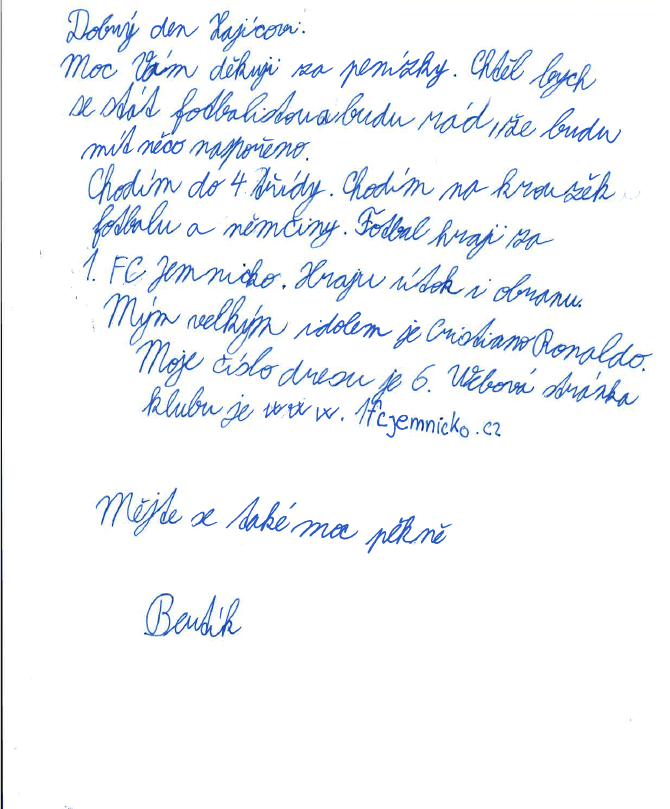 Dobrý den Hajícovi.
Moc Vám děkuji za penízky. Chtěl bych
se stát fotbalistou a budu rád, že budu
mít něco naspořeno.
Chodím do 4. třídy. Chodím na kroužěk
fotbalu a němčiny. Fotbal hraji za
1. FC Jemnicko. Hraju útok i obranu.
Mým velkým idolem je Cristiano Ronaldo.
Moje číslo dresu je 6. Webová stránka
klubu je www. 1fcjemnicko.cz
Mějte se také moc pěkně